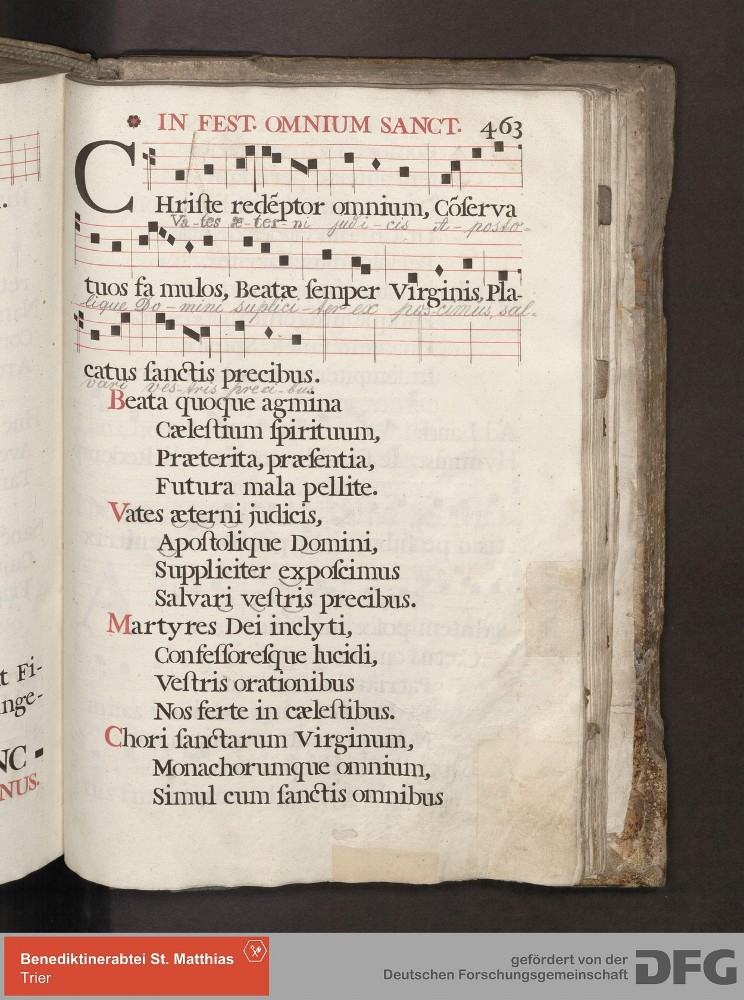 IN FEST. OMNIUM SANCT. 463
CHriſte redẽptor omnium, Cõſerva
Va-tes æ-ter-ni judi-cis A-posto-
tuos fa mulos, Beatæ ſemper Virginis, Pla-
lique Do-mini suplici-ter ex poscimus, sal-
catus ſanctis precibus.
vari ves-tris preci-bus
Beata quoque agmina
Cæleſtium ſpirituum,
Præterita, præſentia,
Futura mala pellite.
Vates æterni judicis,
Apoſtolique Domini,
Suppliciter expoſcimus
Salvari veſtris precibus.
Martyres Dei inclyti,
Confeſſoreſque lucidi,
Veſtris orationibus
Nos ferte in cæleſtibus.
Chori ſanctarum Virginum,
Monachorumque omnium,
Simul cum ſanctis omnibus
t Fi-
nge-
NC
NUS.
Benediktinerabtei St. Matthias
Trier
gefördert von der
Deutschen Forschungsgemeinschaft
DFG